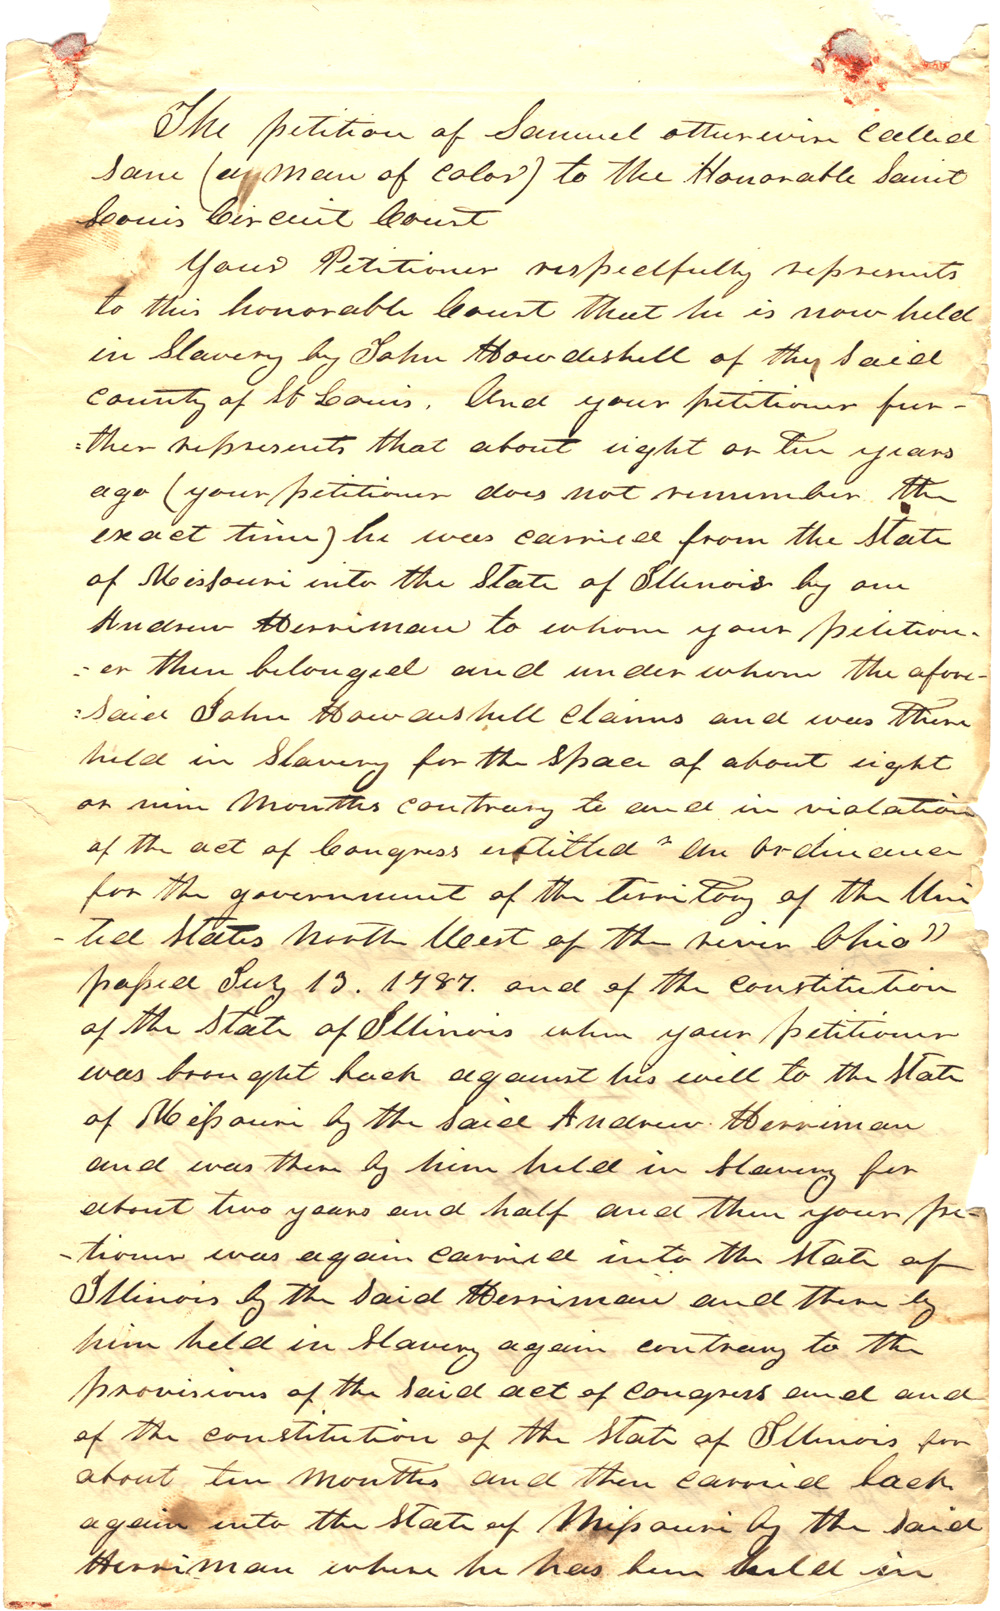 The petition of Samuel otherwise called
Sam (a man of color) to the Honorable Saint
Louis Circuit Court
Your Petitioner respectfully represents
to this honorable Court that he is now held
in Slavery by John Howdeshell of the said
county of St Louis. And your petitioner fur-
=ther represents that about eight or ten years
ago (your petitioner does not remember the
exact time) he was carried from the State
of Missouri into the State of Illinois by one
Andrew Herriman to whom your petition-
-er then belonged and under whom the afore-
=said John Howdeshell claims and was there
held in Slavery for the space of about eight
or nine months contrary to and in violation
of the act of Congress entitled "An Ordinance
for the government of the territory of the Uni
-ted States North West of the river Ohio"
passed July 13. 1787. and of the constitution
of the State of Illinois when your petitioner
was brought back against his will to the State
of Missouri by the said Andrew Herriman
and was there by him held in Slavery for
about two years and half and then your pe-
-tioner was again carried into the State of
Illinois by the said Herriman and there by
him held in Slavery again contrary to the
provisions of the said act of congress and and
of the constitution of the State of Illinois for
about ten months and then carried back
again into the State of Missouri by the said
Herriman where he has been held in